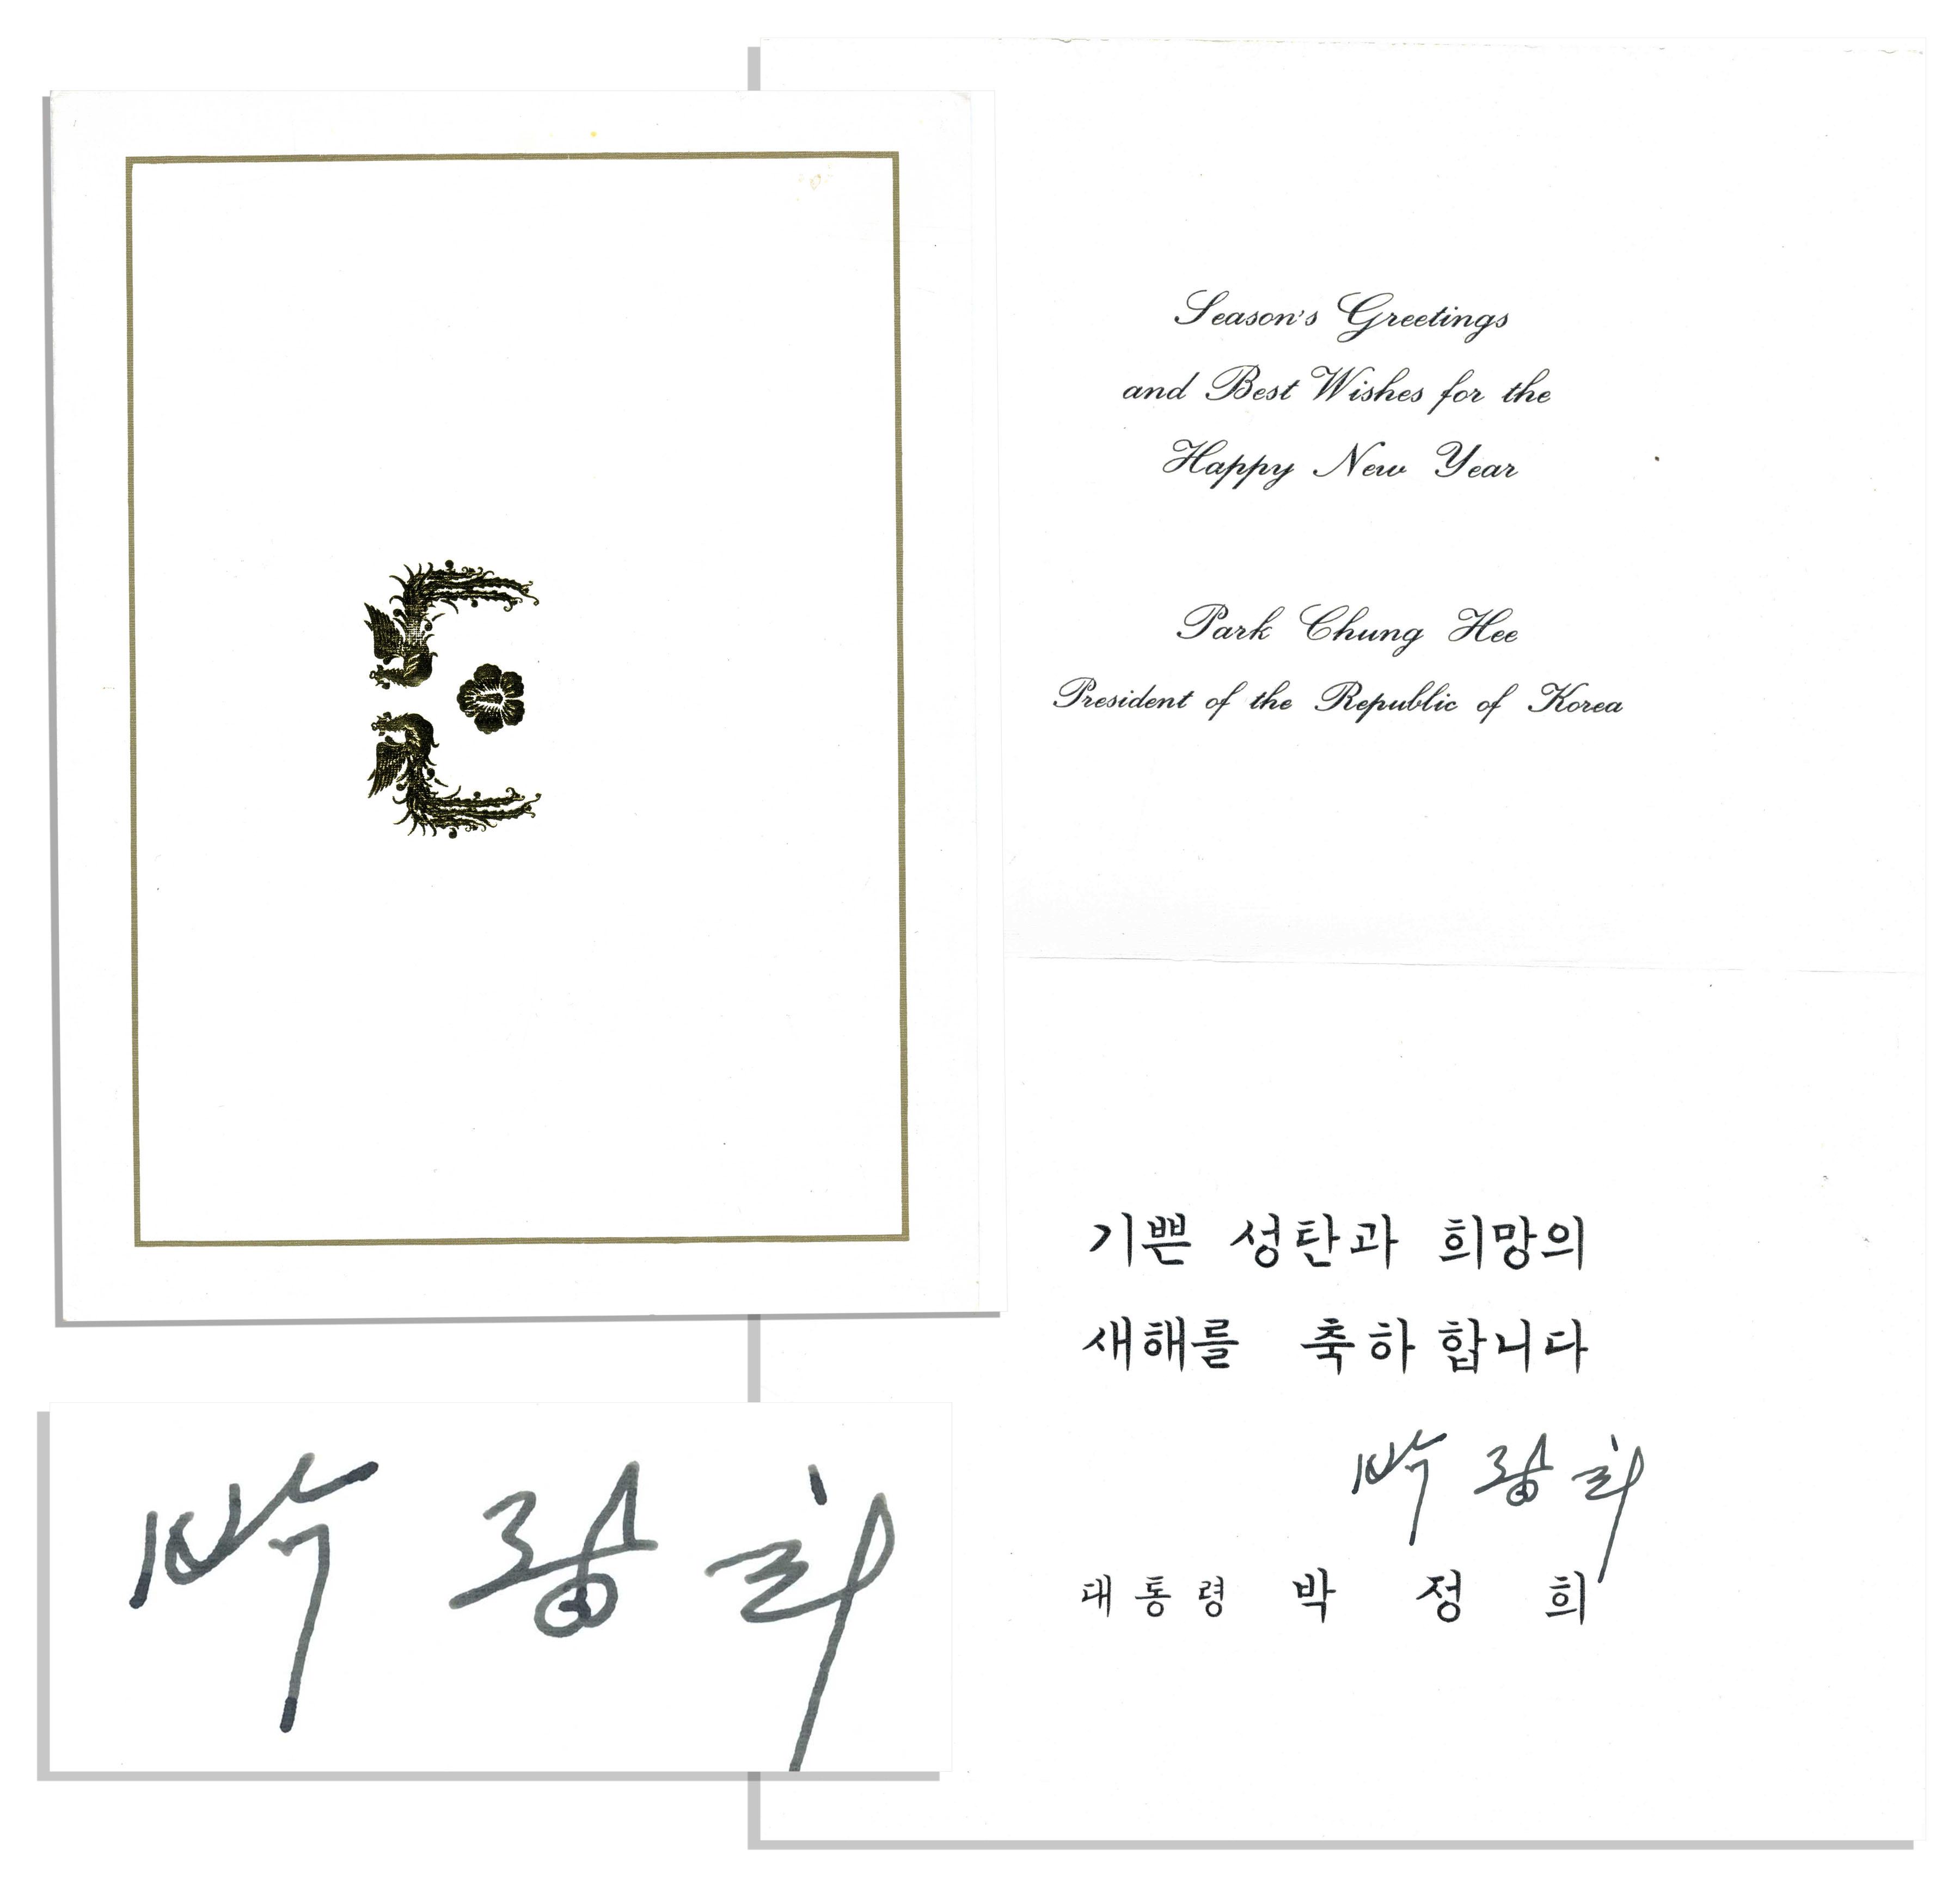 Season's Greetings
and Best Wishes for the
Happy New Year
Park Chung Hee
President of the Republic of Korea
기쁜 성탄과 희망의
새해를 축하 합니다
박 정 희
대통령 박 정 희
박 정 희